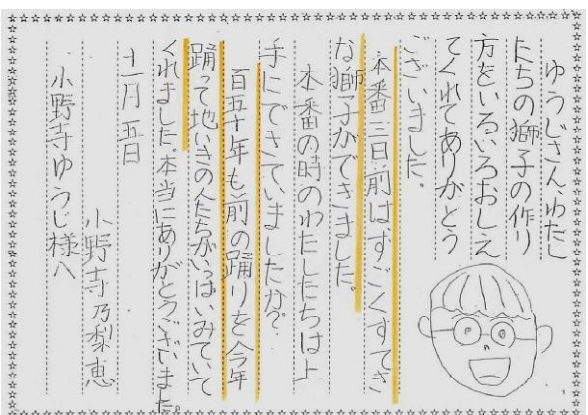 ゆうじさん、わたし
たちの獅子の作り
方をいろいろおしえ
てくれてありがとう
ございました。
本番三日前はすごくすてき
な獅子ができました。
本番の時のわたしたちは上
手にできていましたか?
百五十年も前の踊りを今年
踊って地いきの人たちがいっぱいみていて
くれました。本当にありがとうございまた。
十一月五日
小野寺乃梨恵
小野寺ゆうじ様へ